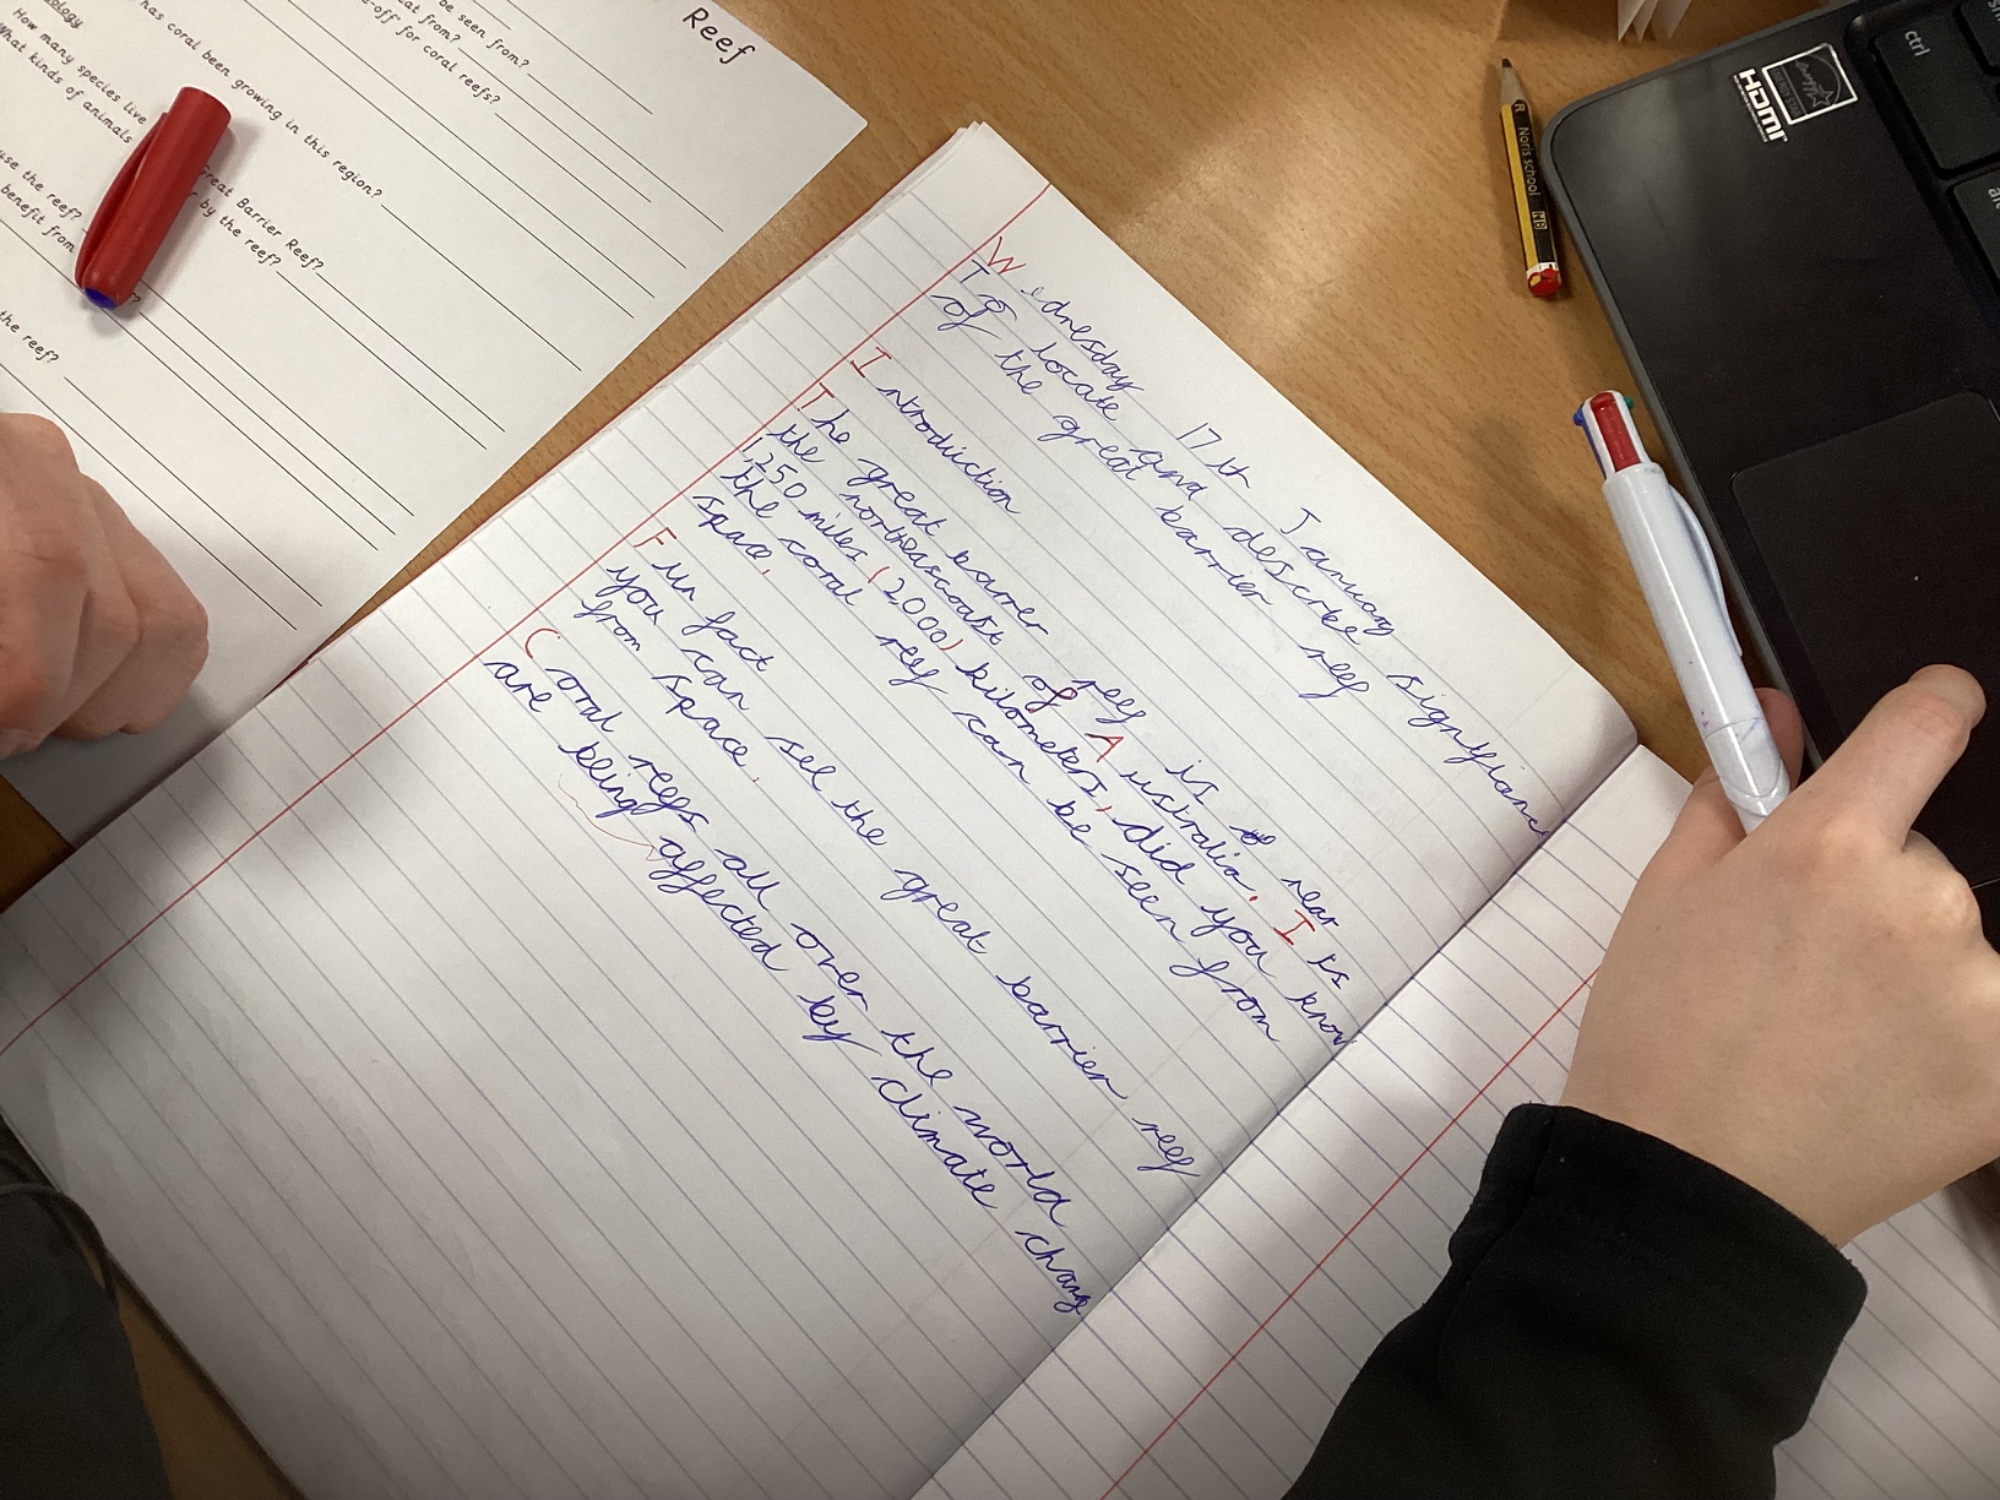 Reef
be seen from?
at from?
e-off' for coral reefs?
has coral been growing in this region?
ology
How many species live
What kinds of animals
Great Barrier Reef?
by the reef?
use the reef?
benefit from
?
the reef?
Wednesday 17th January
To locate and describe signifiance
of the great barrier reef
Introduction
The great barrer reef is near
the northeascoast of Australia. I ts
1,250 miles (2,000) kilometers, did you know
the coral reef can be seen from
space.
Fun fact
you can see the great barrier reef
from space.
Coral reefs all over the world
are being affected by climate change
R Noris school HB
HDMI
ENERGY STAR
ctrl
alt